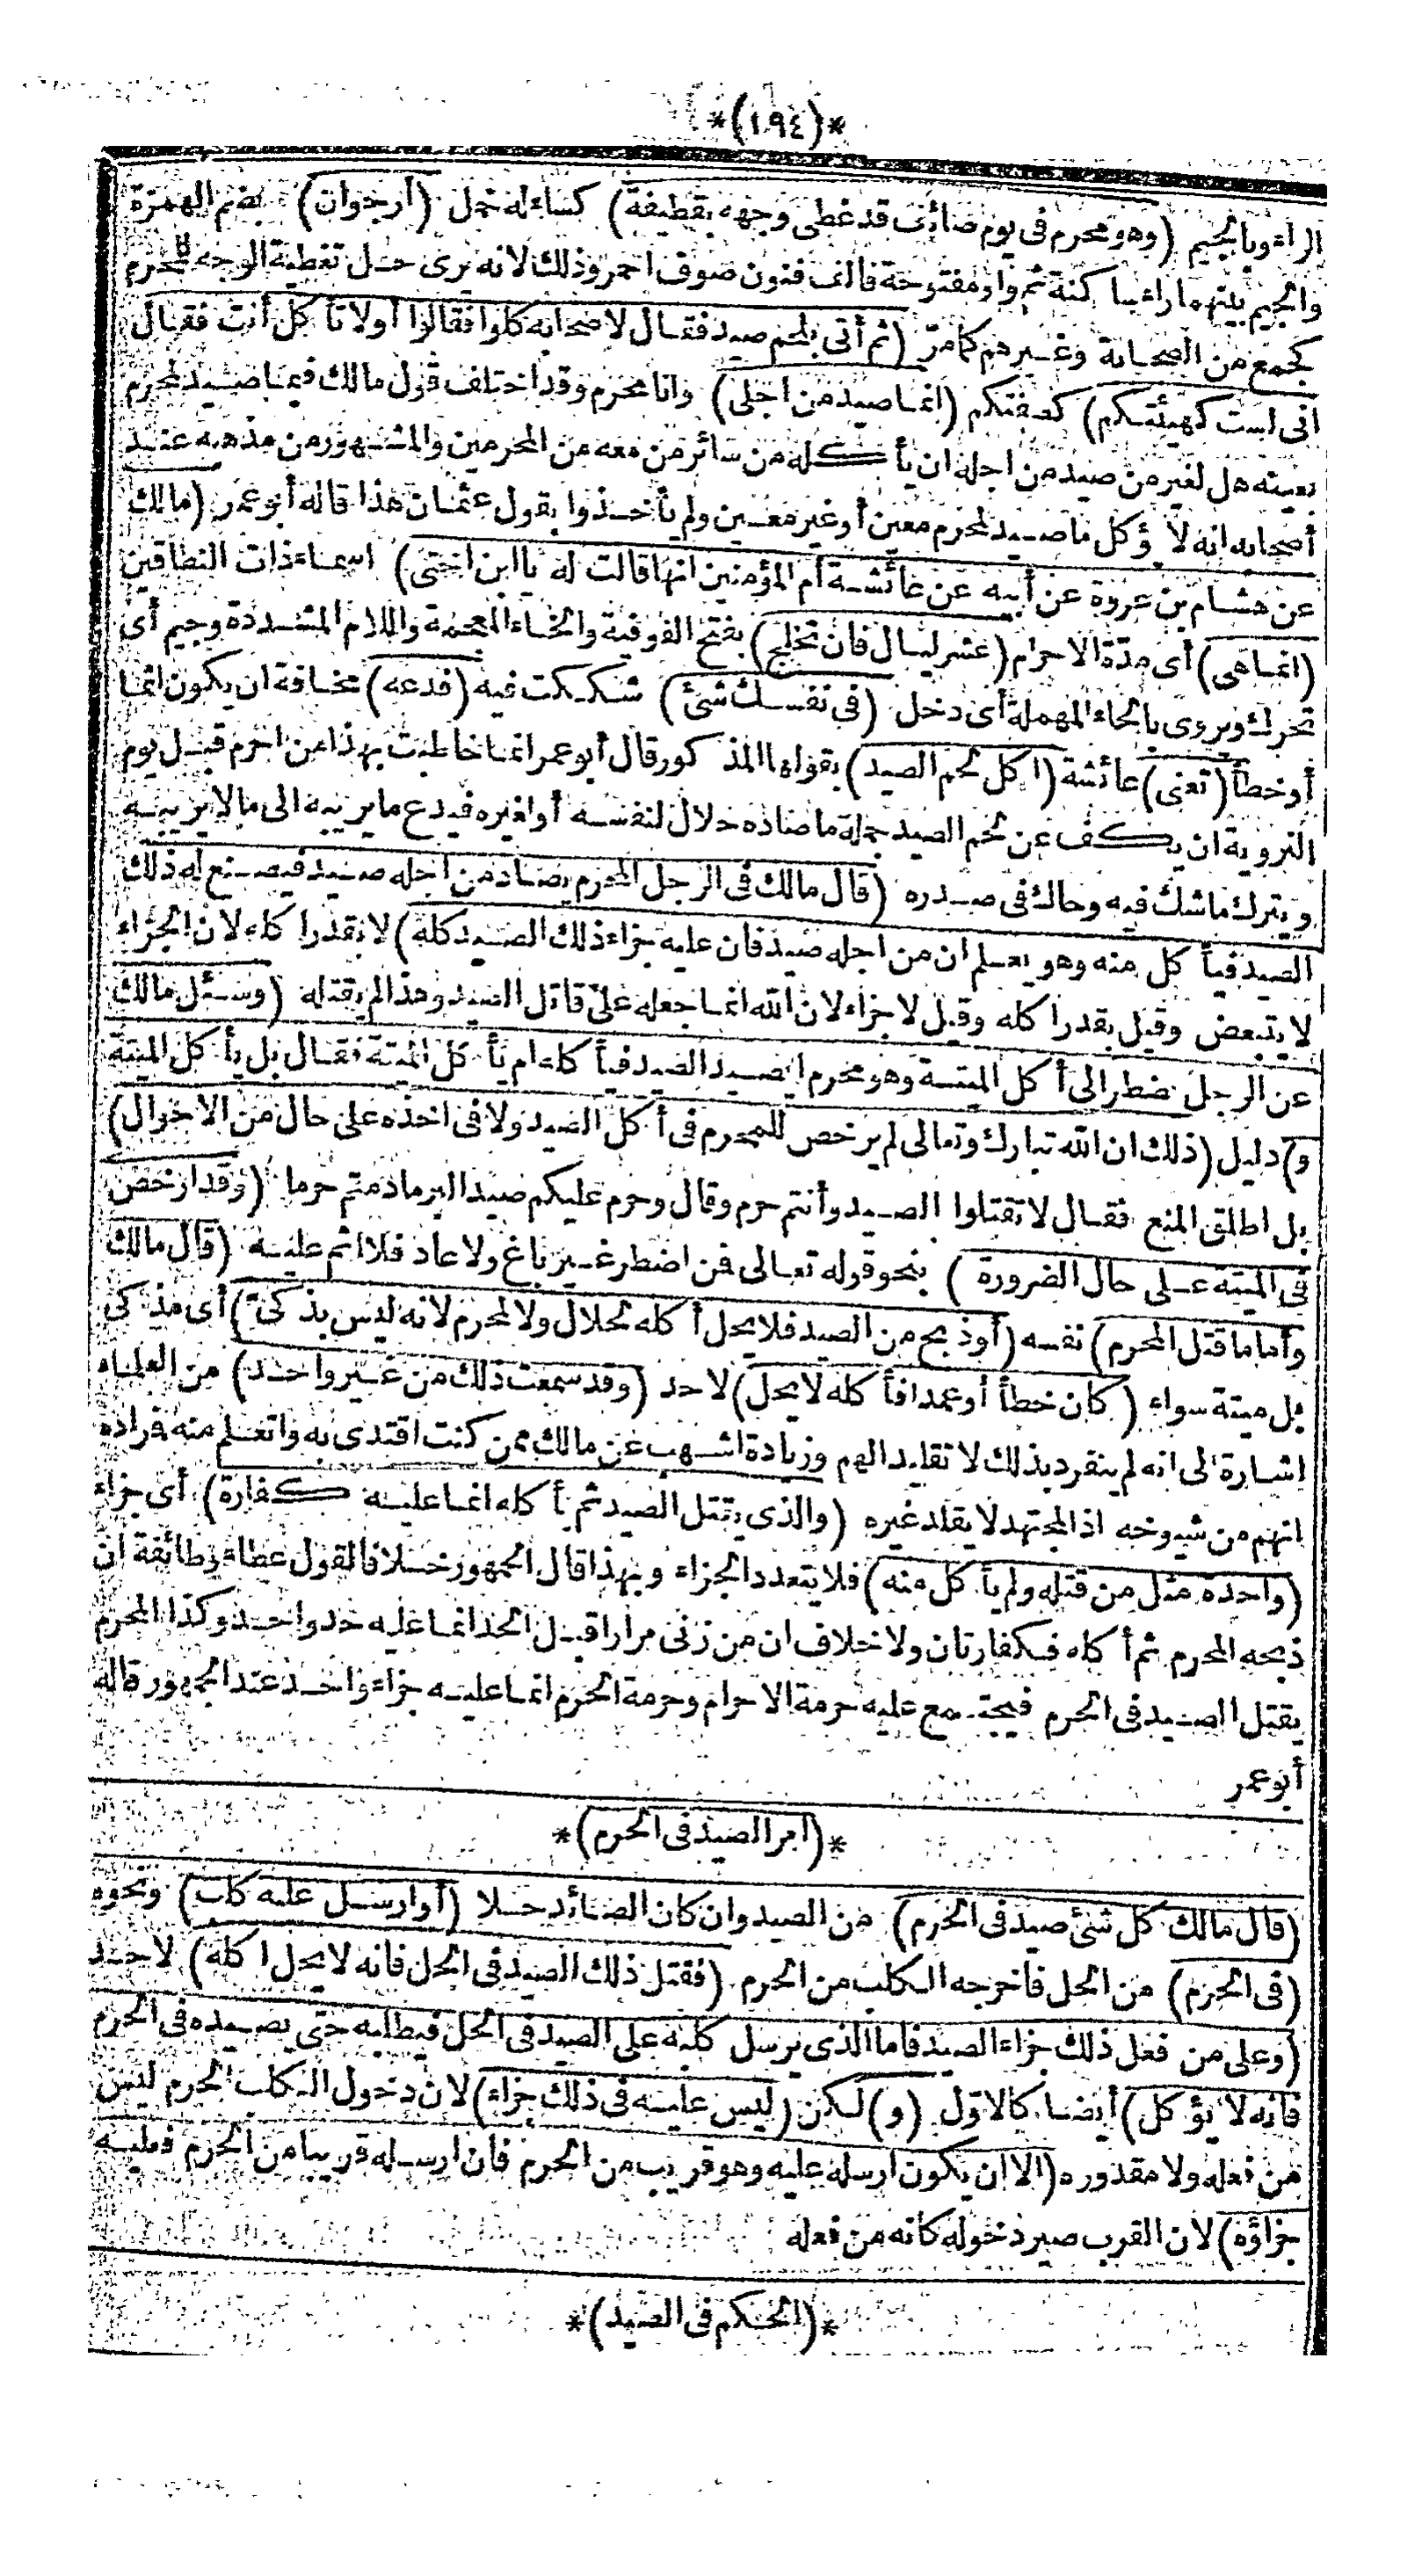 *(١٩٤)*
الراء وبالجيم (وهو محرم فى يوم صائف قد غطى وجهه بقطيفة) كساء له خمل (أرجوان) بضم الهمزة
والجيم بينهما راء ساكنة ثم واو مفتوحة فألف فنون صوف احمر وذلك لانه يرى حل تغطية الوجه للمحرم
كجمع من الصحابة وغيرهم كما مرّ (ثم أتى بلحم صيد فقال لاصحابه كلوا فقالوا أولا تأكل أنت فقال
انى لست كهيئتكم) كصفتكم (انما صيد من اجلى) وانا محرم وقد اختلف قول مالك فيما صيد لمحرم
بعينه هل لغير من صيد من اجله ان يأكله من سائر من معه من المحرمين والمشهور من مذهبه عند
أصحابه انه لا يؤكل ما صيد لمحرم معين أو غير معين ولم يأخذوا بقول عثمان هذا قاله أبو عمر (مالك
عن هشام بن عروة عن أبيه عن عائشة أم المؤمنين انها قالت له يا ابن اختى) اسماء ذات النطاقين
(انما هى) أى مدة الاحرام (عشر ليال فان تخلج) بفتح الفوقية والخاء المعجمة واللام المشددة وجيم أى
تحرك ويروى بالحاء المهملة أى دخل (فى نفسك شئ) شككت فيه (فدعه) مخافة ان يكون اثما
أو خطأ (تعنى) عائشة (اكل لحم الصيد) بقولها المذكور قال أبو عمر انما خاطبت بهذا من احرم قبل يوم
التروية ان يكف عن لحم الصيد جملة ما صاده حلال لنفسه أو لغيره فيدع ما يريبه الى ما لا يريبه
ويترك ما شك فيه وحاك فى صدره (قال مالك فى الرجل المحرم يصاد من اجله صيد فيصنع له ذلك
الصيد فيأكل منه وهو يعلم ان من اجله صيد فان عليه جزاء ذلك الصيد كله) لا بقدر اكله لان الجزاء
لا يتبعض وقيل بقدر اكله وقيل لا جزاء لان الله انما جعله على قاتل الصيد وهذا لم يقتله (وسئل مالك
عن الرجل يضطر الى أكل الميتة وهو محرم ايصيد الصيد فيأكله ام يأكل الميتة فقال بل يأكل الميتة
و) دليل (ذلك ان الله تبارك وتعالى لم يرخص للمحرم فى أكل الصيد ولا فى اخذه على حال من الاحوال)
بل اطلق المنع فقال لا تقتلوا الصيد وأنتم حرم وقال وحرم عليكم صيد البر ما دمتم حرما (وقد ارخص
فى الميتة على حال الضرورة) بنحو قوله تعالى فمن اضطر غير باغ ولا عاد فلا اثم عليه (قال مالك
وأما ما قتل المحرم) نفسه (أو ذبح من الصيد فلا يحل أكله لحلال ولا لمحرم لانه ليس بذكىّ) أى مذكى
بل ميتة سواء (كان خطأ أو عمدا فأكله لا يحل) لاحد (وقد سمعت ذلك من غير واحد) من العلماء
اشارة الى انه لم ينفرد بذلك لا تقليد الهم وزيادة اشهب عن مالك ممن كنت اقتدى به واتعلم منه فراده
انهم من شيوخه اذ المجتهد لا يقلد غيره (والذى يقتل الصيد ثم يأكله انما عليه كفارة) أى جزاء
(واحدة مثل من قتله ولم يأكل منه) فلا يتعدد الجزاء وبهذا قال الجمهور خلافا لقول عطاء وطائفة ان
ذبحه المحرم ثم أكله فكفارتان ولا خلاف ان من زنى مرارا قبل الحد انما عليه حد واحد وكذا المحرم
يقتل الصيد فى الحرم فيجتمع عليه حرمة الاحرام وحرمة الحرم انما عليه جزاء واحد عند الجمهور قاله
أبو عمر
*(أمر الصيد فى الحرم)*
(قال مالك كل شئ صيد فى الحرم) من الصيد وان كان الصائد حلا (أو ارسل عليه كلب) ونحوه
(فى الحرم) من الحل فأخرجه الكلب من الحرم (فقتل ذلك الصيد فى الحل فانه لا يحل اكله) لاحد
(وعلى من فعل ذلك جزاء الصيد فاما الذى يرسل كلبه على الصيد فى الحل فيطلبه حتى يصيده فى الحرم
فانه لا يؤكل) أيضا كالاول (و) لكن (ليس عليه فى ذلك جزاء) لان دخول الكلب الحرم ليس
من فعله ولا مقدوره (الا ان يكون ارسله عليه وهو قريب من الحرم فان ارسله قريبا من الحرم فعليه
جزاؤه) لان القرب صير دخوله كانه من فعله
*(الحكم فى الصيد)*